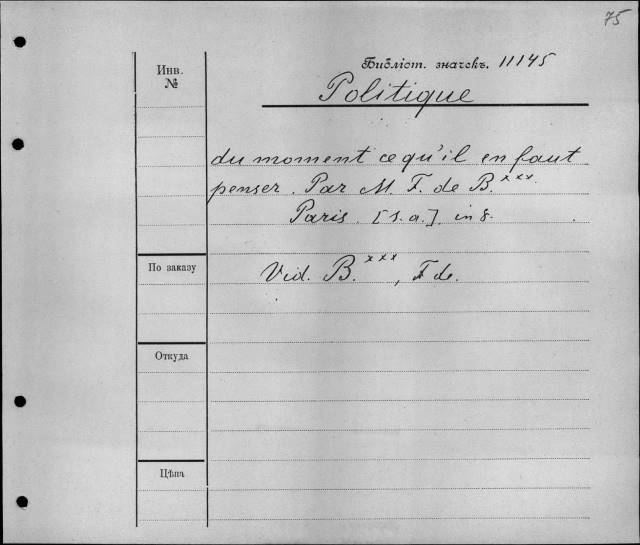 75
Инв.
№
Библіот. значекъ. 11145
Politique
du moment ce qu'il en faut
penser. Par M. F. de B.xxx.
Paris. [s.a.]. in 8.
По заказу
Vid. B.xxx, F. de.
Откуда
Цѣна